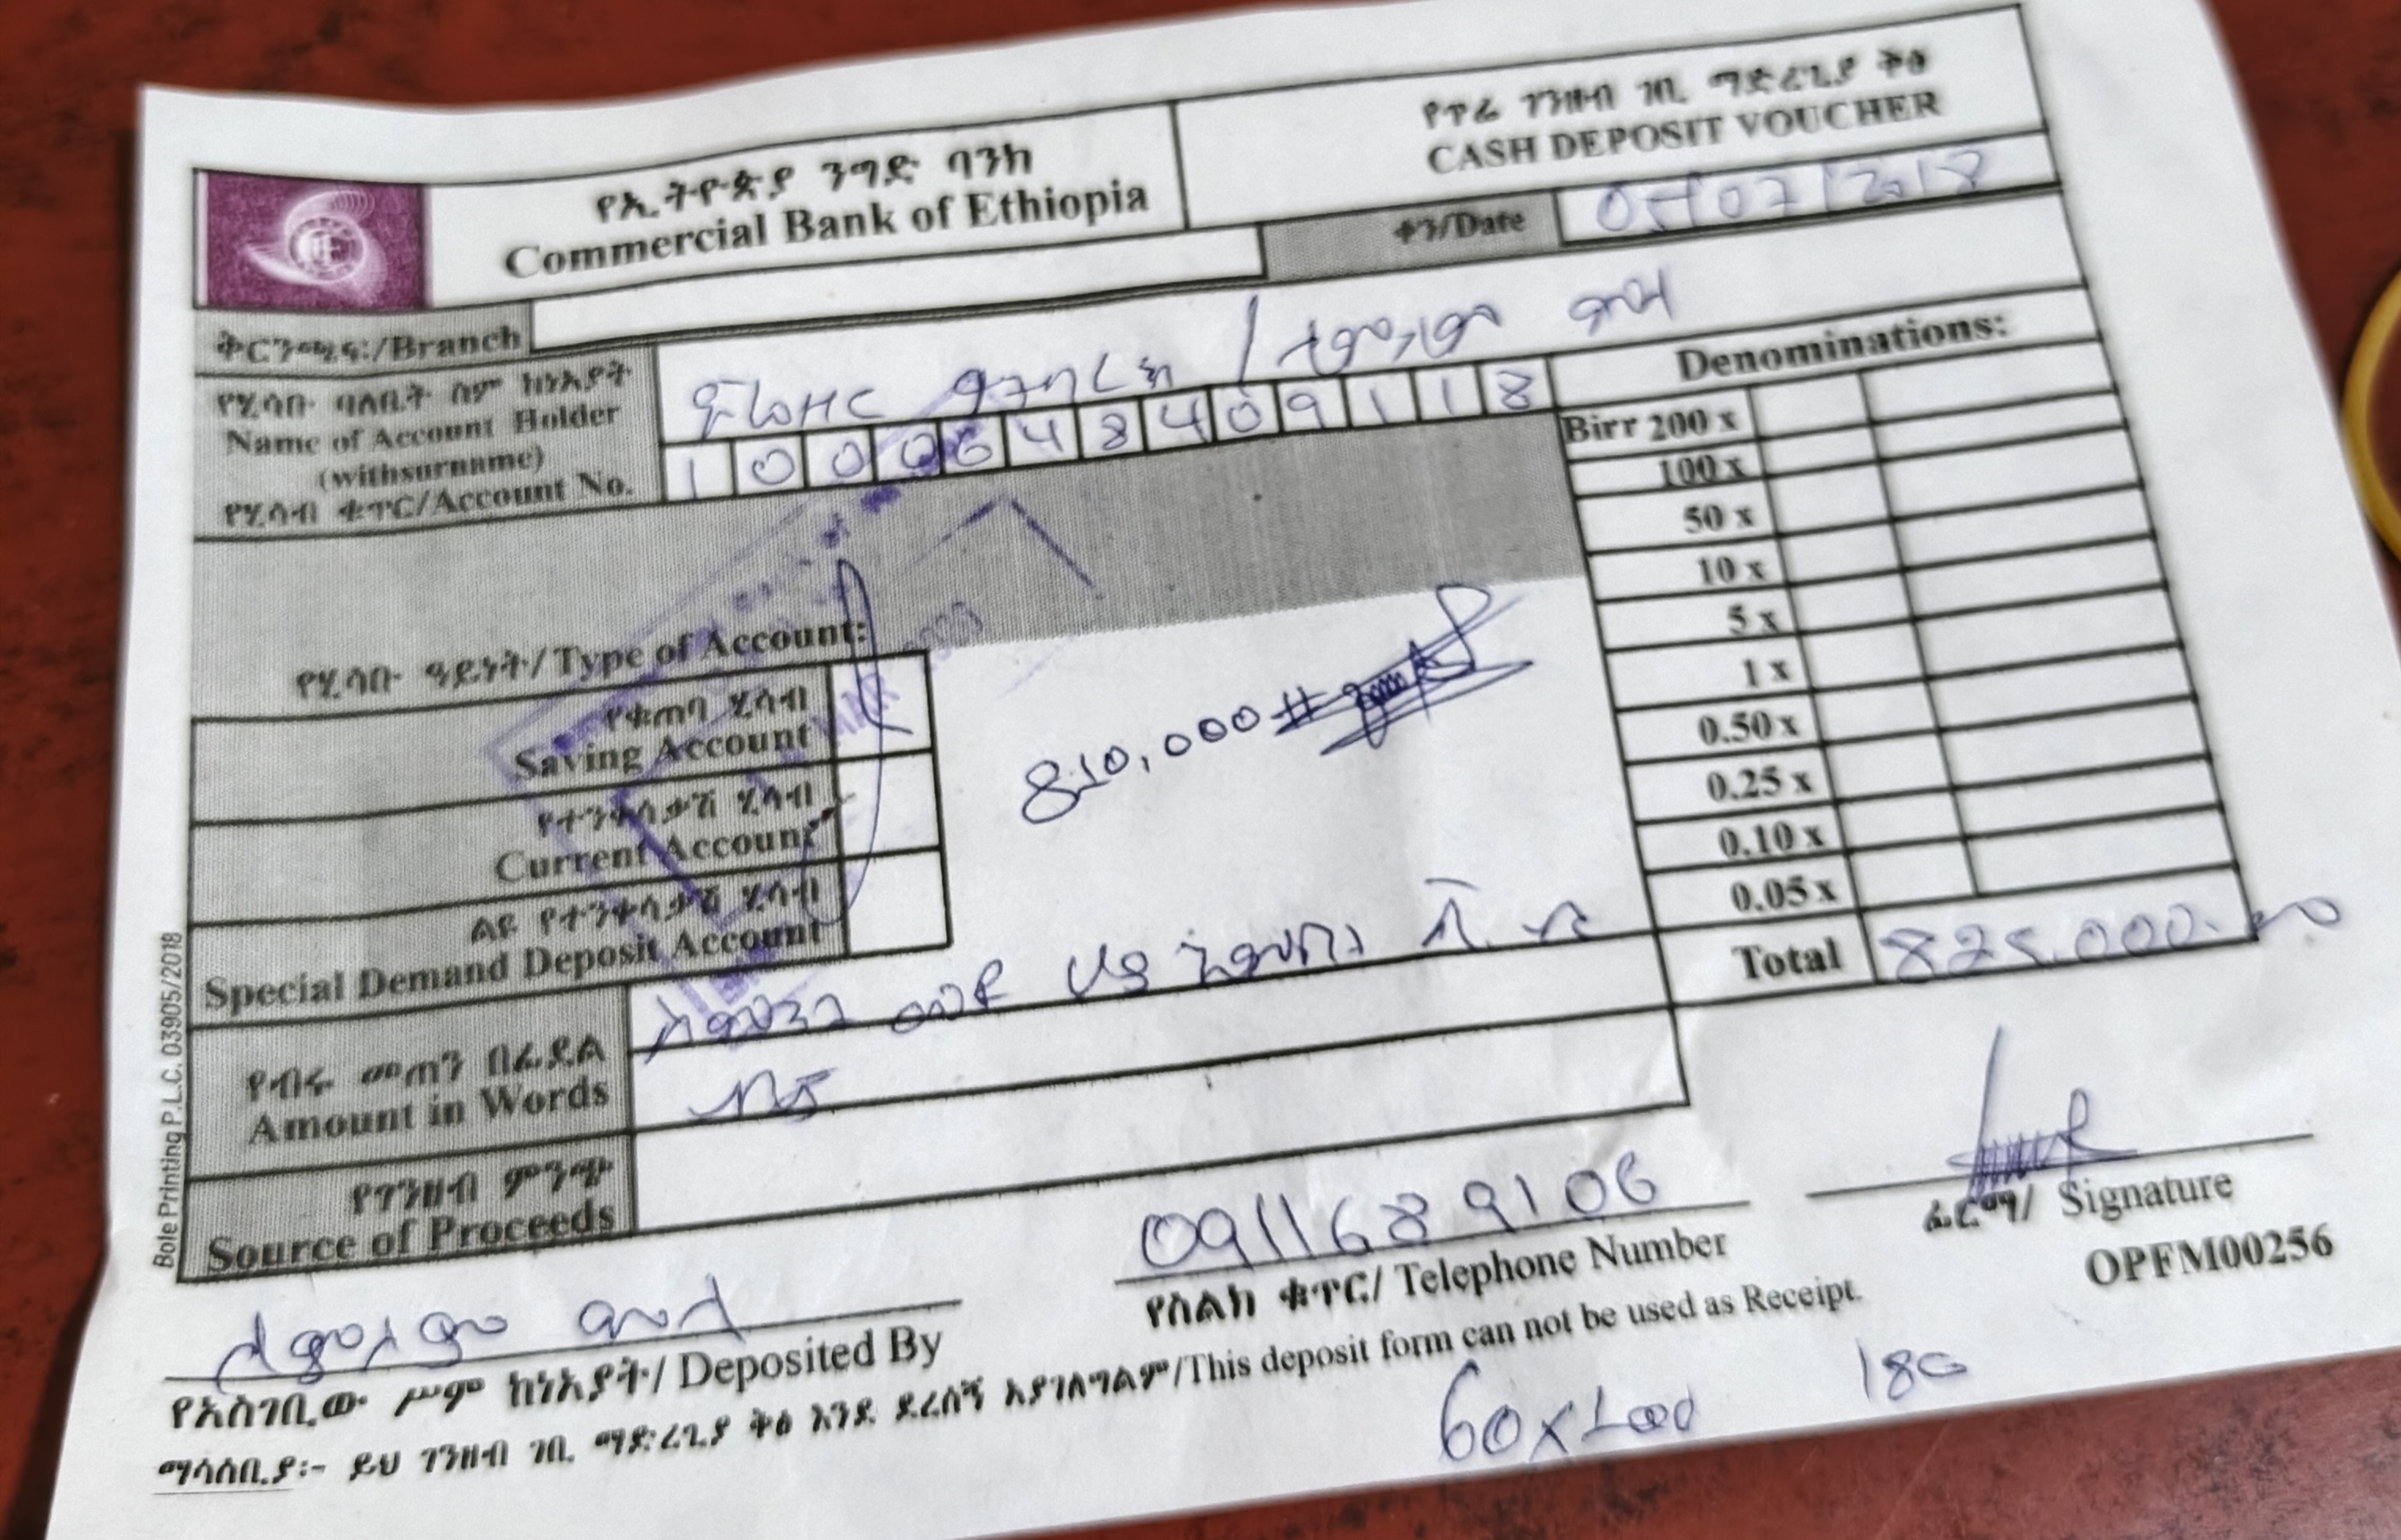 የኢትዮጵያ ንግድ ባንክ
Commercial Bank of Ethiopia
የጥሬ ገንዘብ ገቢ ማድረጊያ ቅፅ
CASH DEPOSIT VOUCHER
ቀን/Date 05/07/2018
ቅርንጫፍ:/Branch
የሂሳቡ ባለቤት ስም ከነአያት
Name of Account Holder
(withsurname)
የሂሳብ ቁጥር/Account No. 1000648409118
Denominations:
Birr 200 x
100 x
50 x
10 x
5 x
1 x
0.50 x
0.25 x
0.10 x
0.05 x
Total 825.000.00
የሂሳቡ ዓይነት/Type of Account:
የቁጠባ ሂሳብ
Saving Account
የተንቀሳቃሽ ሂሳብ
Current Account
ልዩ የተንቀሳቃሽ ሂሳብ
Special Demand Deposit Account
810,000 #
የብሩ መጠን በፊደል
Amount in Words
የገንዘብ ምንጭ
Source of Proceeds
0911689106
የስልክ ቁጥር/ Telephone Number
ፊርማ/ Signature
OPFM00256
የአስገቢው ሥም ከነአያት/ Deposited By
ማሳሰቢያ፡- ይህ ገንዘብ ገቢ ማድረጊያ ቅፅ እንደ ደረሰኝ አያገለግልም/This deposit form can not be used as Receipt.
60x1000
180
Bole Printing P.L.C. 03905/2018